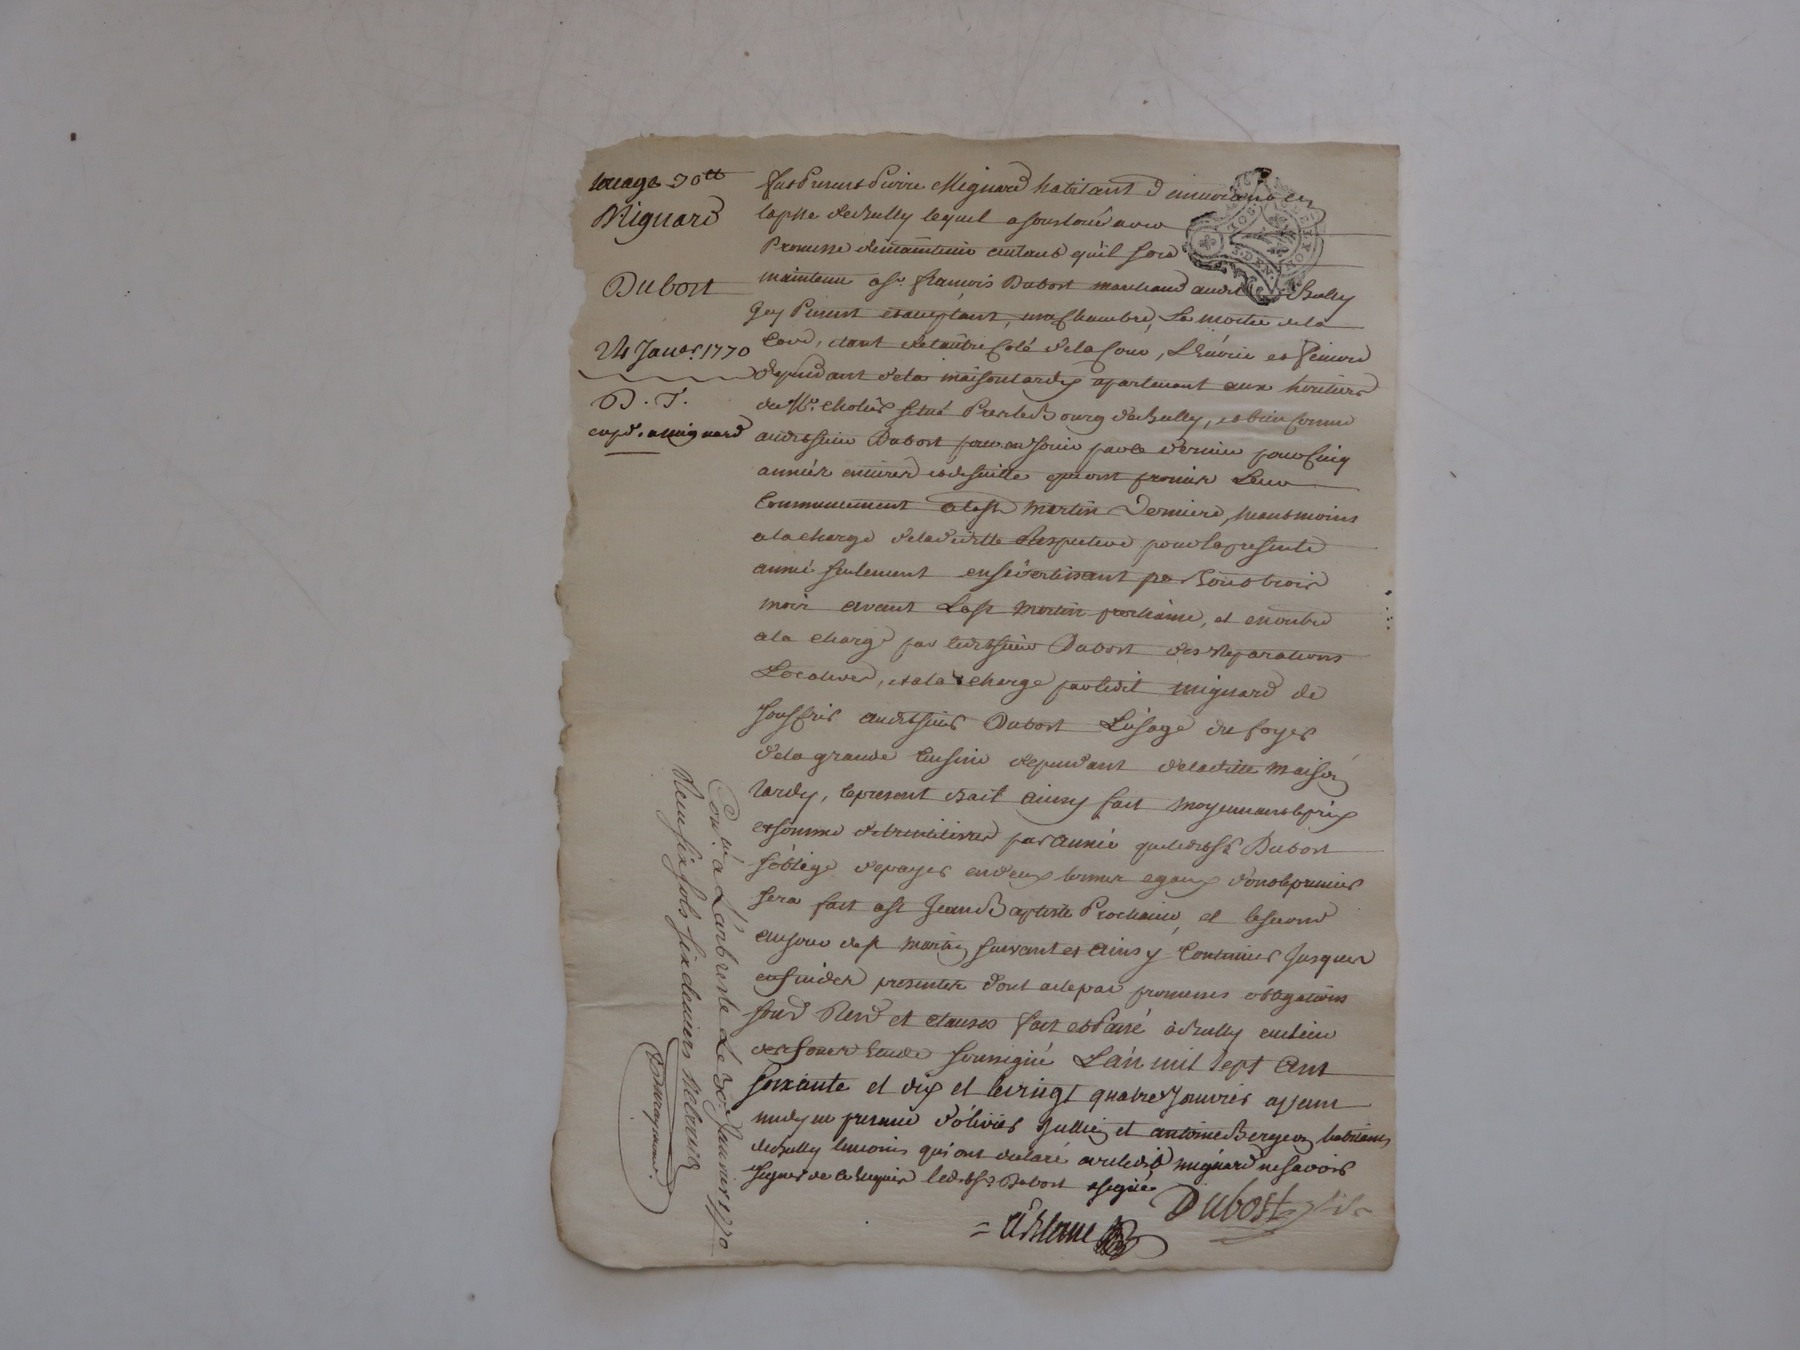 louage 30tt
Mignard
Dubost
24 Janvr. 1770
D. T.
expd. a mignard
fut Present Pierre Mignard habitant d
lapsse de Bully lequel a souloué avec
Promesse de maintenir autant quil sera
maintenu a sr. francois Dubost marchand audit Bully
Icy Present et aceptant, une chambre, La moitié de la
Cave, étant de l'autre Coté de la Cour, L'Ecurie et feniere
dependant de la maison tardy apartenant aux heritiers
de Mr. cholier situé Pres le Bourg de Bully, et bien connue
audit sieur Dubost pour en jouir par ce dernier pour Cinq
années entieres et de suitte qui ont pris Leur
Commencement a la st. martin Derniere, neantmoins
a la charge de la deditte Respective pour la presente
année seulement en s'avertissant par trois
mois avant La st. martin prochaine, et en outre
a la charge par ledit sieur Dubost des Reparations
Locatives, et a la charge par ledit mignard de
souffrir audit sieur Dubost L'usage du foyer
de la grande Cuisine dependant de laditte maison
tardy, le present Bail ainsy fait moyennant le prix
et somme de trente livres par année que ledit sr. Dubost
s'oblige de payer en deux termes egaux dont le premier
sera fait a st. Jean Baptiste Prochain, et le second
au jour de st. martin suivant et ainsy Continuer jusques
en fin des presentes dont acte par promesses obligations
soud. Rend. et clauses fait et Passé à Bully
soussigné L'an mil sept Cent
soixante et dix et le vingt quatre Janvier apres
midy en presence d'olivier Jullien et antoine Bergeron habitants
de Bully temoins qui ont declaré avec ledit mignard ne savoir
signer de ce Requis ledit sr. Dubost a signé
Dubost fils
Conlé. a L'arbresle Le 30. Janvier 1770
Reçu six sols six deniers